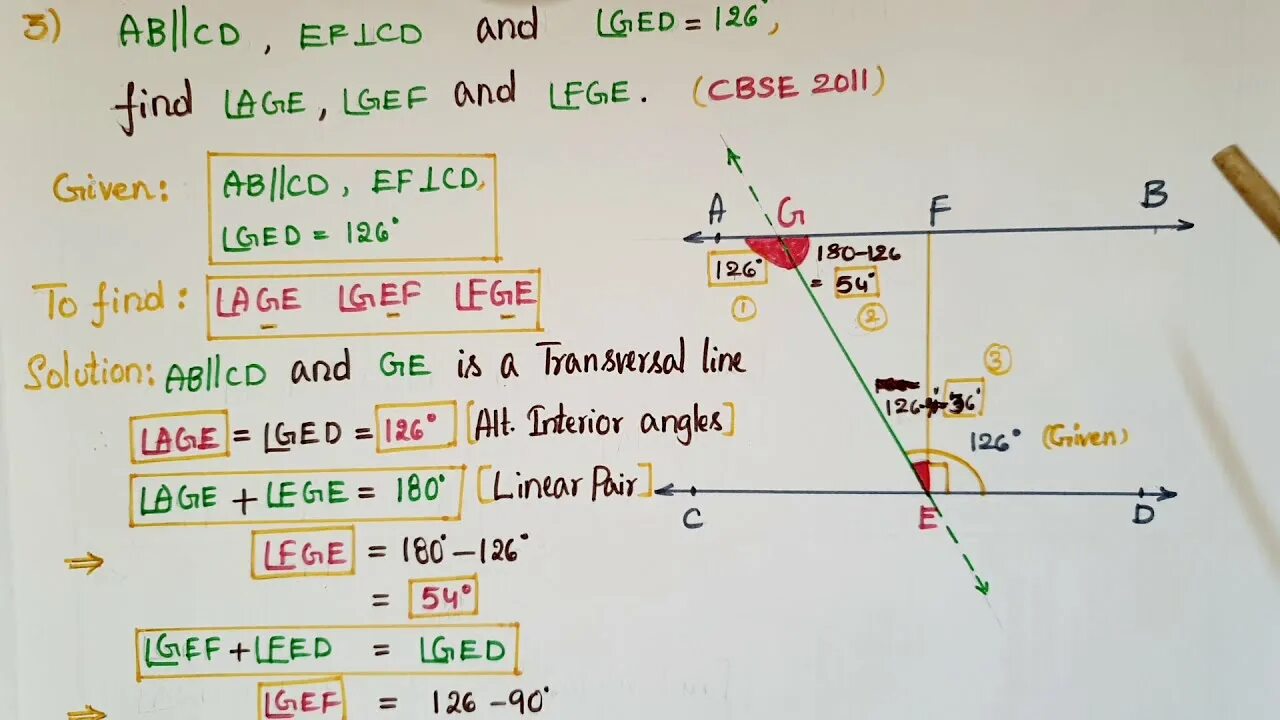 3) AB||CD, EF⊥CD and ∠GED = 126°,
find ∠AGE, ∠GEF and ∠FGE. (CBSE 2011)
Given: AB||CD, EF⊥CD,
∠GED = 126°
To find: ∠AGE ∠GEF ∠FGE
Solution: AB||CD and GE is a Transversal line
∠AGE = ∠GED = 126° [Alt. Interior angles]
∠AGE + ∠FGE = 180° [Linear Pair]
⇒ ∠FGE = 180° - 126°
= 54°
∠GEF + ∠FED = ∠GED
⇒ ∠GEF = 126 - 90°
A G F B
126° 180-126
= 54°
1 2
3
126 36°
126° (Given)
C E D